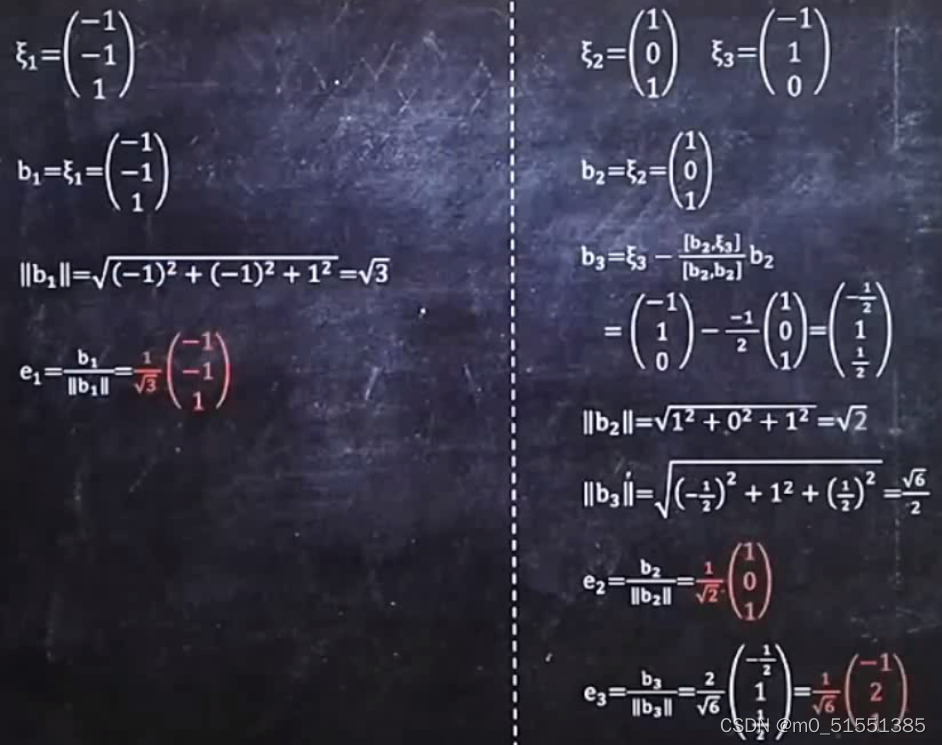 ξ₁=(−1 −1 1)
b₁=ξ₁=(−1 −1 1)
‖b₁‖=√((−1)² + (−1)² + 1²)=√3
e₁=b₁/‖b₁‖=1/√3(−1 −1 1)
ξ₂=(1 0 1) ξ₃=(−1 1 0)
b₂=ξ₂=(1 0 1)
b₃=ξ₃−[b₂,ξ₃]/[b₂,b₂]b₂
=(−1 1 0)−−1/2(1 0 1)=(−1/2 1 1/2)
‖b₂‖=√(1² + 0² + 1²)=√2
‖b₃‖=√((−1/2)² + 1² + (1/2)²)=√6/2
e₂=b₂/‖b₂‖=1/√2(1 0 1)
e₃=b₃/‖b₃‖=2/√6(−1/2 1 1/2)=1/√6(−1 2
CSDN @m0_51551385